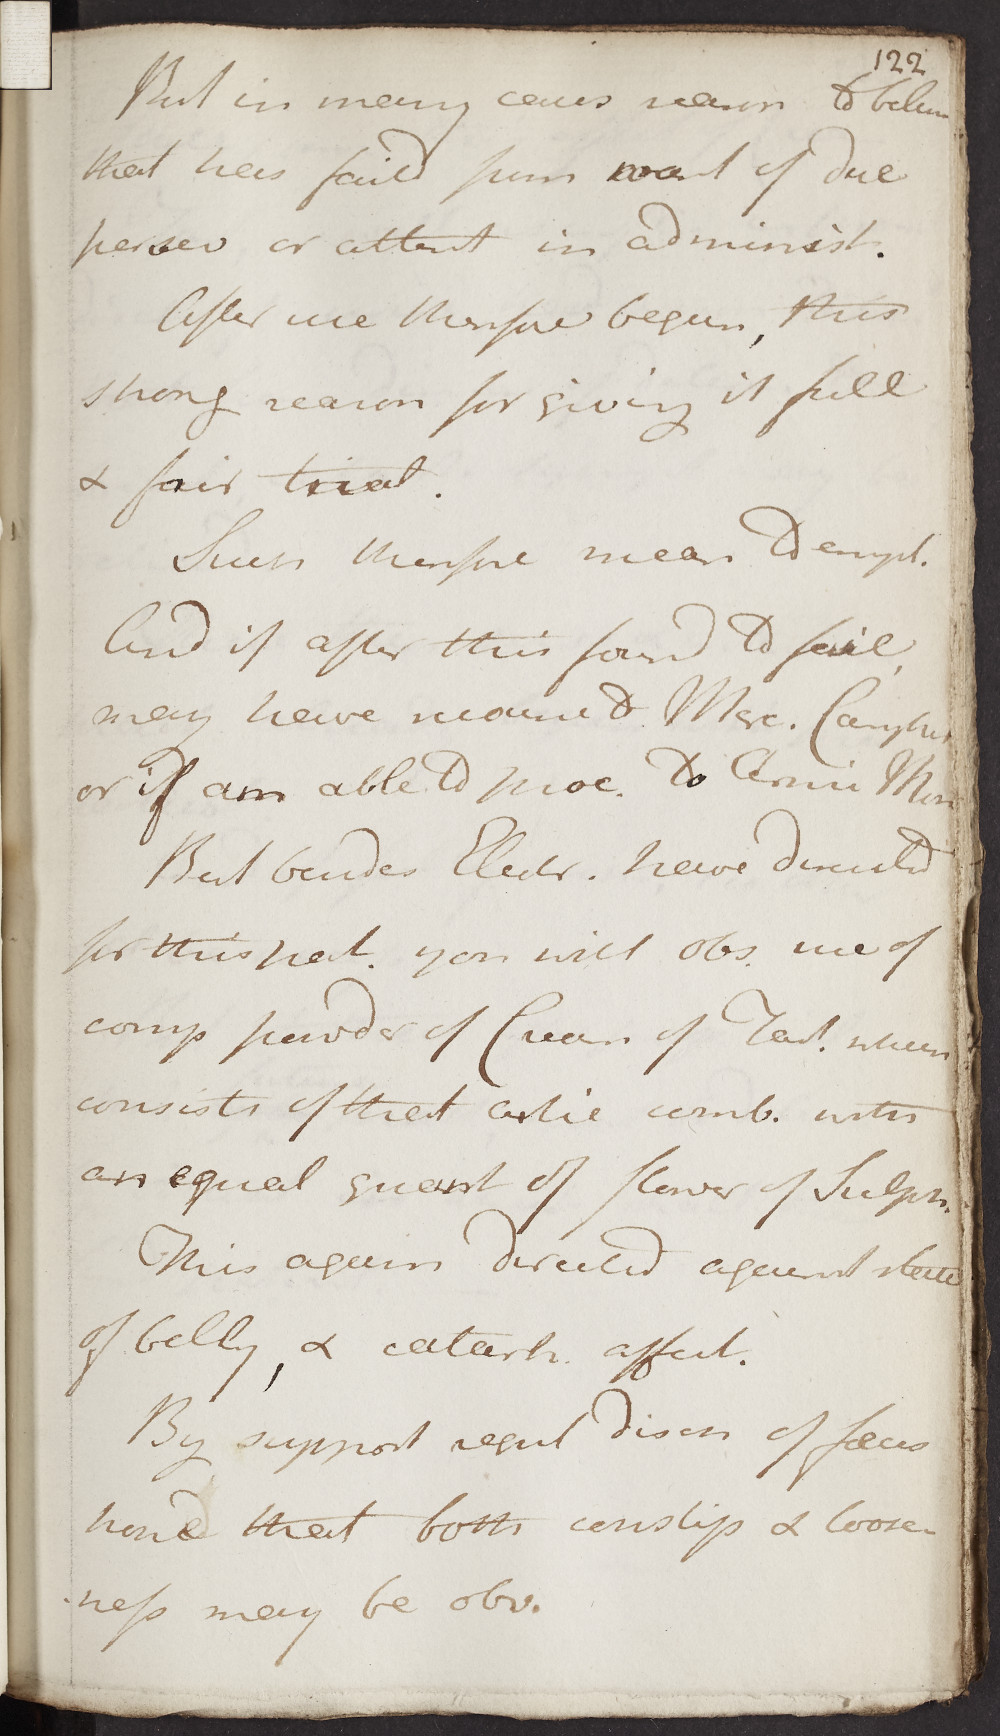 122
But in many cases reason to believ
that has faild from want of due
persev or attent in administ.
After use therefore begun, this
strong reason for giving it full
& fair trial.
Such therefore mean to empl.
And if after this found to fail,
may have recourse to Merc. Camphor
or if am able to proc. to
But besides Elect. have directed
for this pat. you will obs. use of
comp powder of Cream of Tart. which
consists of that artic comb. with
an equal quant of flower of Sulph.
This again directed against state
of belly, & catarh. affect.
By support regul disch of fæces
hope that both constip & loose-
ness may be obv.